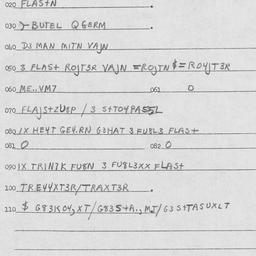 020 FLAS+N .
030 >-BUTEL QGERM .
040 D3 MAN MITN VAJN
050 3 FLAS+ ROJT3R VAJN =ROJTN $=ROYJT3R
060 ME..VM7 061 O
070 FLAJS+ZU8P / 3 S+TO4PA55L
080 1X HE4T GE4.RN G3HAT 3 FU8L3 FLAS+
081 O 082 O
090 1X TRIN7K FU8N 3 FU8L3XX FLAS+
100 TRE44XT3R/TRAXT3R .
110 $ G83KO4,XT/G83S+A.,MJ/G3S+TASUXLT